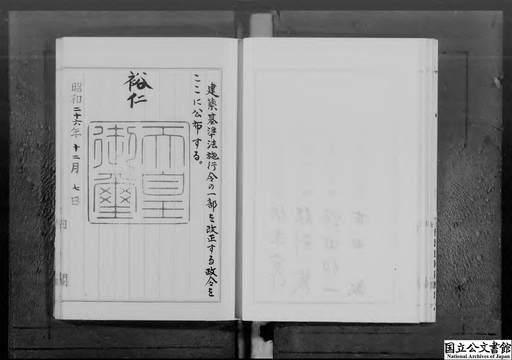 建築基準法施行令の一部を改正する政令を
ここに公布する。
裕仁
天皇
御璽
昭和二十六年十二月七日
国立公文書館
National Archives of Japan